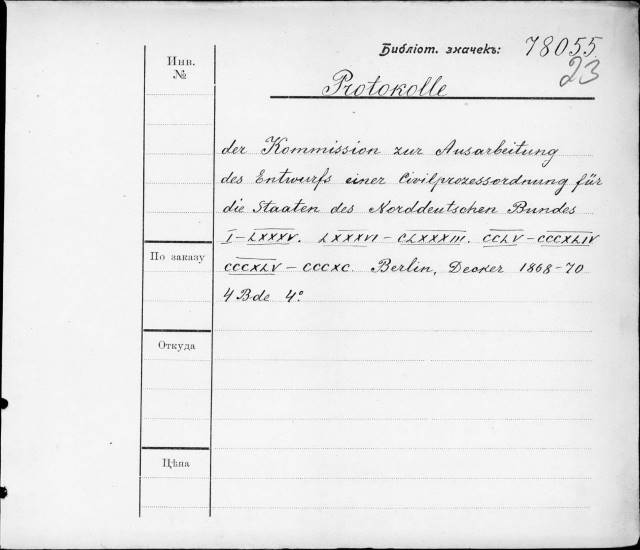 Библіот. значекъ: 78055
23
Инв.
№
Protokolle
der Kommission zur Ausarbeitung
des Entwurfs einer Civilprozessordnung für
die Staaten des Norddeutschen Bundes
I–LXXXV. LXXXVI–CLXXXIII. CCLV–CCCXLIV
По заказу
CCCXLV–CCCXC. Berlin, Decker 1868–70
4 Bde 4°.
Откуда
Цѣна